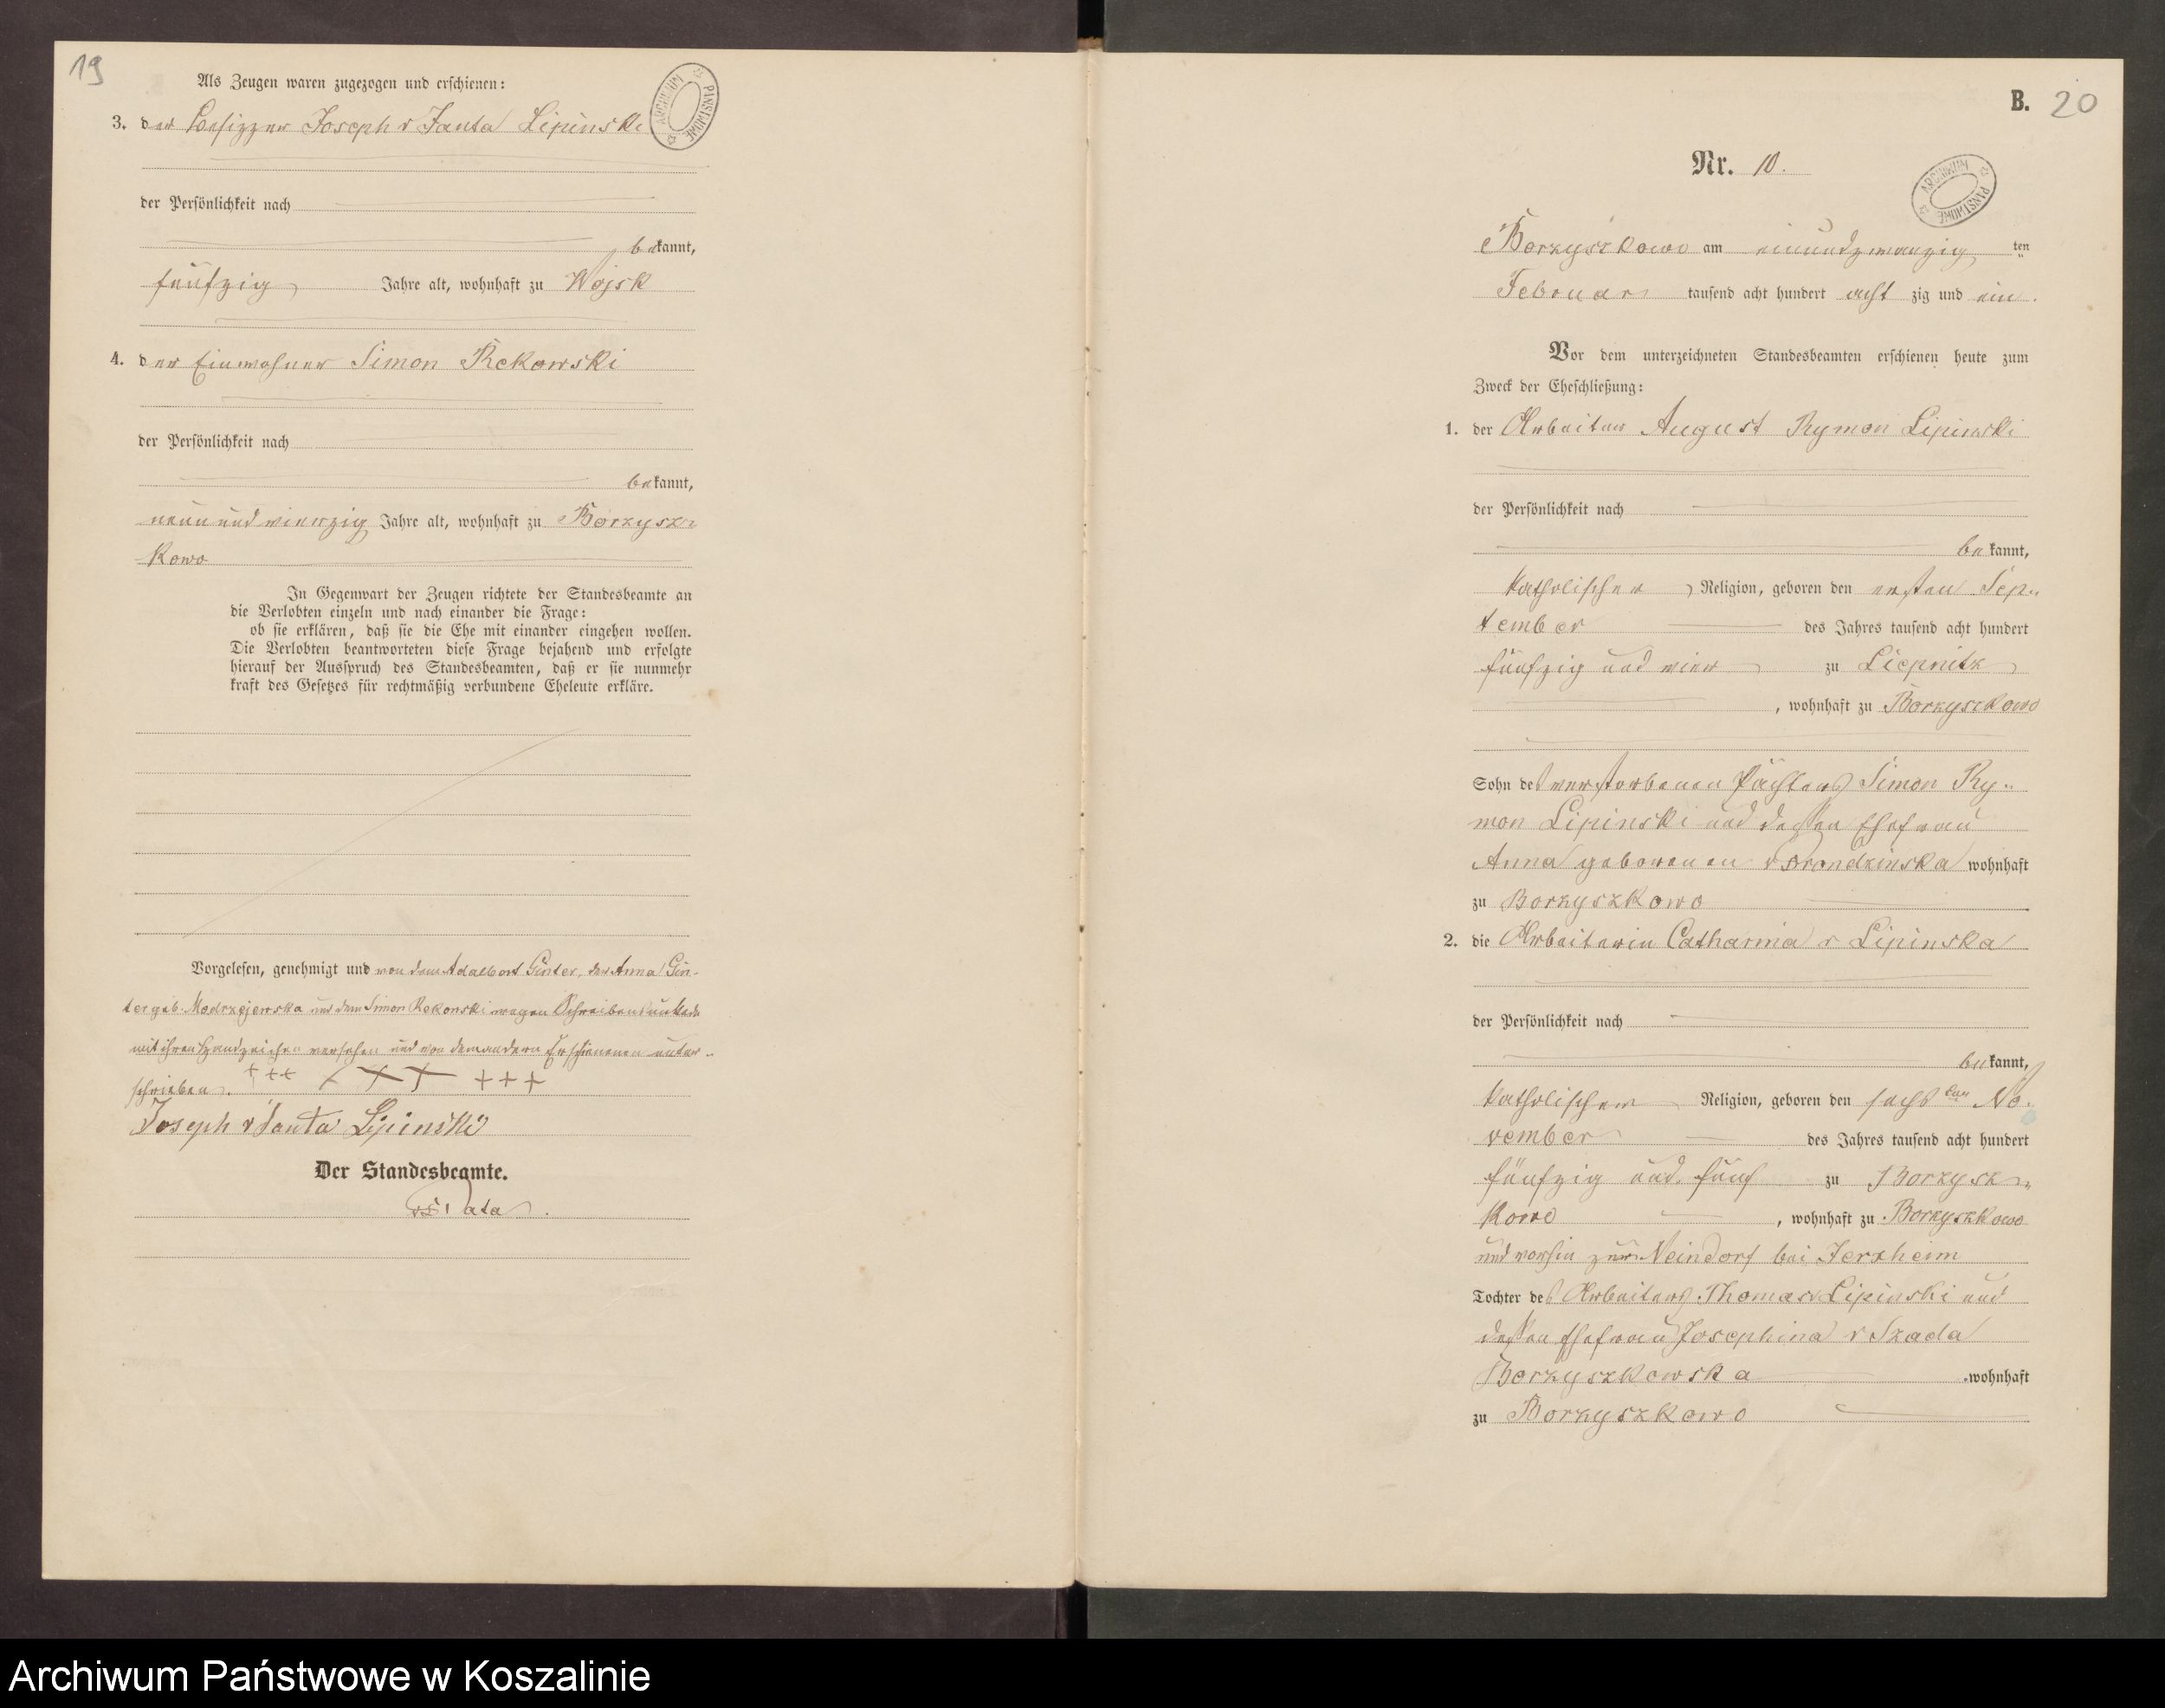 19
Als Zeugen waren zugezogen und erschienen:
3. der Besitzer Joseph v Janta Lipinski
ARCHIWUM PAŃSTWOWE
der Persönlichkeit nach
bekannt,
fünfzig Jahre alt, wohnhaft zu Wojsk
4. der Einwohner Simon Rekowski
der Persönlichkeit nach
bekannt,
neunundvierzig Jahre alt, wohnhaft zu Borzysz-
kowo
In Gegenwart der Zeugen richtete der Standesbeamte an
die Verlobten einzeln und nach einander die Frage:
ob sie erklären, daß sie die Ehe mit einander eingehen wollen.
Die Verlobten beantworteten diese Frage bejahend und erfolgte
hierauf der Ausspruch des Standesbeamten, daß er sie nunmehr
kraft des Gesetzes für rechtmäßig verbundene Eheleute erkläre.
Vorgelesen, genehmigt und von dem Adalbert Ginter, der Anna Gin-
ter geb. Modrzejewska und dem Simon Rekowski wegen Schreibensunkunde
mit ihren Handzeichen versehen und von dem andern Erschienenen unter-
schrieben. +++ +++ +++
Joseph v Janta Lipinski
Der Standesbeamte.
B. 20
Nr. 10.
ARCHIWUM PAŃSTWOWE
Borzyszkowo am einundzwanzig ten
Februar tausend acht hundert acht zig und ein.
Vor dem unterzeichneten Standesbeamten erschienen heute zum
Zweck der Eheschließung:
1. der Arbeiter August Rymon Lipinski
der Persönlichkeit nach
bekannt,
katholischer Religion, geboren den ersten Sep-
tember des Jahres tausend acht hundert
fünfzig und vier zu Liepnitz
, wohnhaft zu Borzyszkowo
Sohn des verstorbenen Pächters Simon Ry-
mon Lipinski und dessen Ehefrau
Anna geborenen v wohnhaft
zu Borzyszkowo
2. die Arbeiterin Catharina v Lipinska
der Persönlichkeit nach
bekannt,
katholischer Religion, geboren den sechsten No-
vember des Jahres tausend acht hundert
fünfzig und fünf zu Borzysz-
kowo , wohnhaft zu Borzyszkowo
und vorhin zu Neindorf bei Jerxheim
Tochter des Arbeiters Thomas v Lipinski und
dessen Ehefrau Josephina v Szada
Borzyszkowska wohnhaft
zu Borzyszkowo
Archiwum Państwowe w Koszalinie